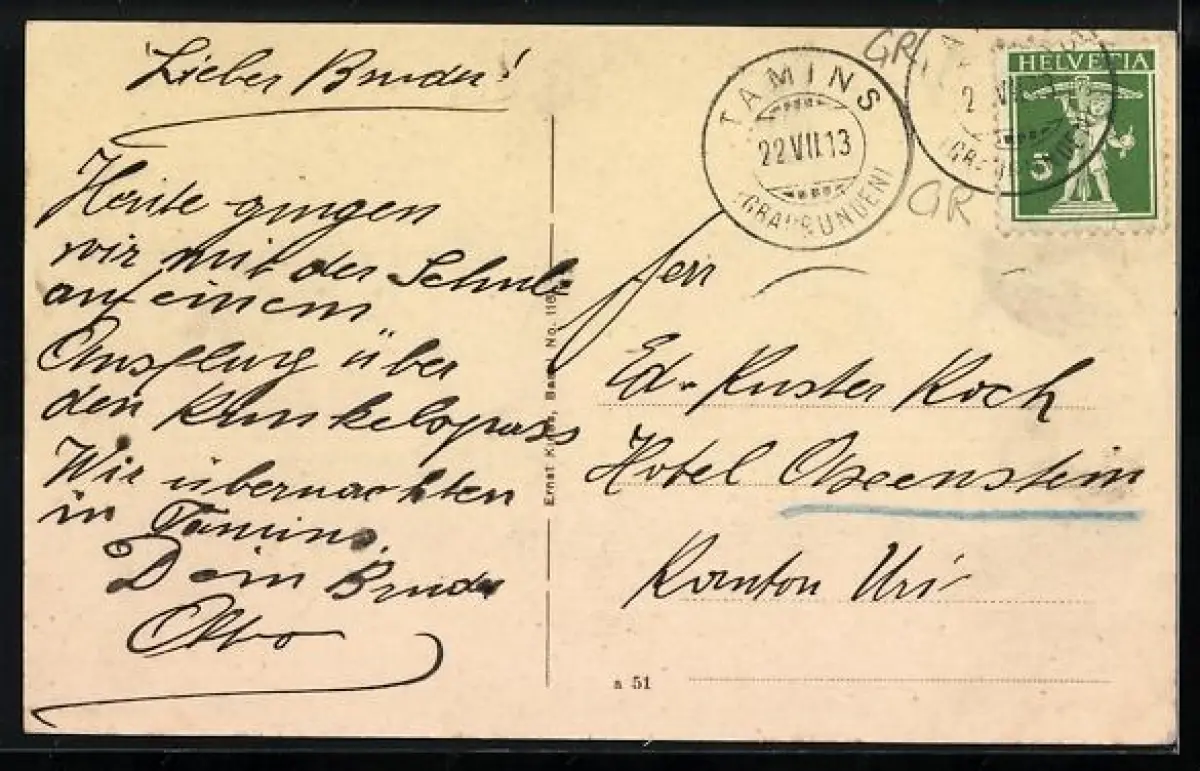 Lieber Bruder!
Heute gingen
wir mit der Schule
auf einem
Ausflug über
den Kunkelspass
Wir übernachten
in Tamins.
Dein Bruder
Otto
Ernst K Basel No. 116
TAMINS
22 VII 13
(GRAUBÜNDEN)
GR
GR
HELVETIA
5
Herr
Ed. Kuster Koch
Hotel Axenstein
Kanton Uri
a 51